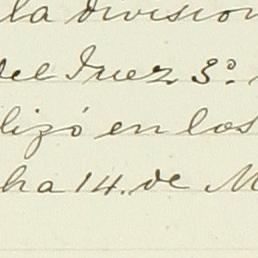 la division
del Juez 3º.
lizó en los
ha 14. de M